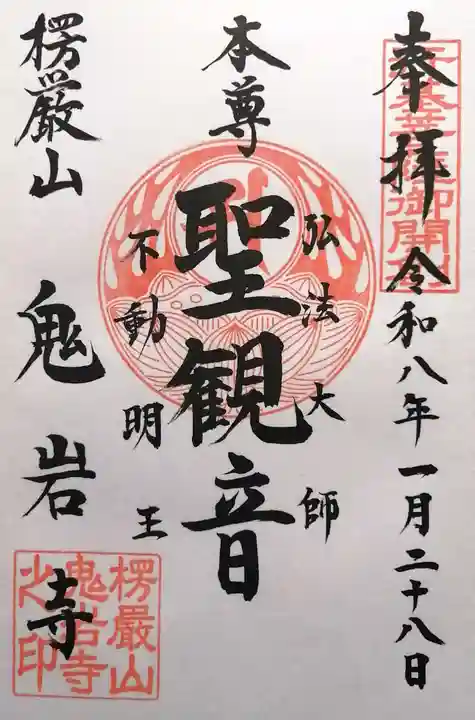 奉拝 令和八年一月二十八日
行基菩薩御開創
本尊
弘法大師
聖観音
不動明王
楞厳山
鬼岩寺
楞嚴山
鬼岩寺
之印